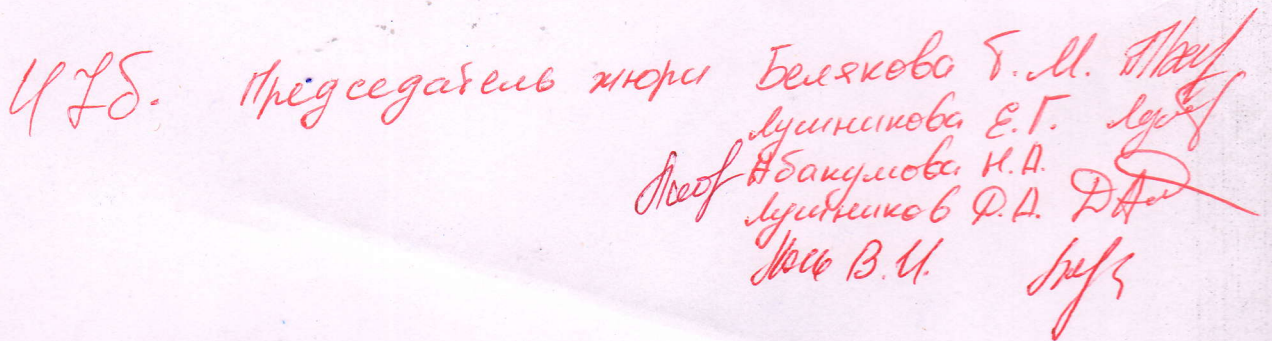 47б. Председатель жюри Белякова Т. М.
Лушникова Е.Г.
Абакумова Н.А.
Лушников Д.А.
В.И.